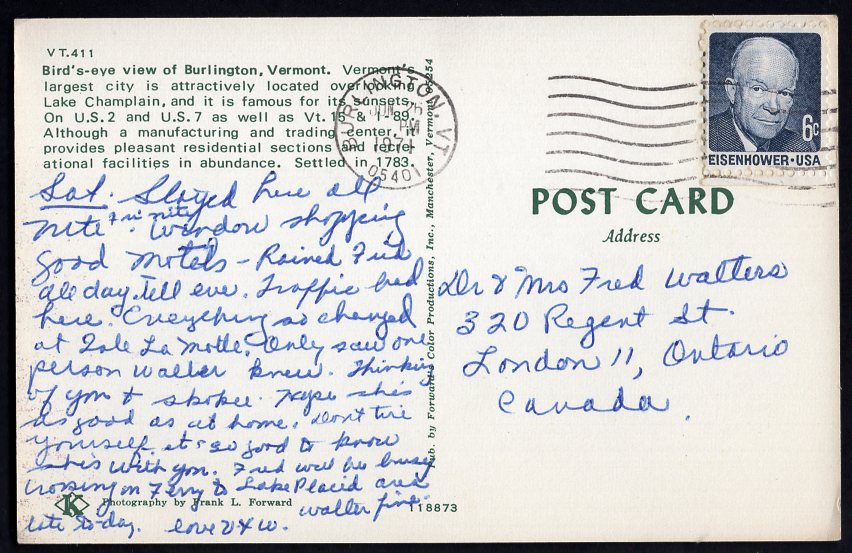 VT.411
Bird's-eye view of Burlington, Vermont. Vermont's
largest city is attractively located overlooking
Lake Champlain, and it is famous for its sunsets.
On U.S.2 and U.S.7 as well as Vt. 15 & I-89.
Although a manufacturing and trading center, it
provides pleasant residential sections and recre-
ational facilities in abundance. Settled in 1783.
Sat. Stayed here all
nite Fri nite. Window shopping
good motels - Rained Frid
all day till eve. Traffic bad
here. Everything so changed
at Isle La Motte. Only saw one
person Walter knew. Thinking
of you & . Hope she's
as good as at home. Don't tire
yourself. it's so good to know
she's with you. Fred will be busy
crossing on Ferry to Lake Placid area
late today. Walter fine.
love V & W.
K
Photography by Frank L. Forward
118873
Pub. by Forward's Color Productions, Inc., Manchester, Vermont 05254
BURLINGTON, VT
JUN 26
PM
1971
05401
6c
EISENHOWER·USA
POST CARD
Address
Dr & Mrs Fred Walters
320 Regent St.
London 11, Ontario
Canada.